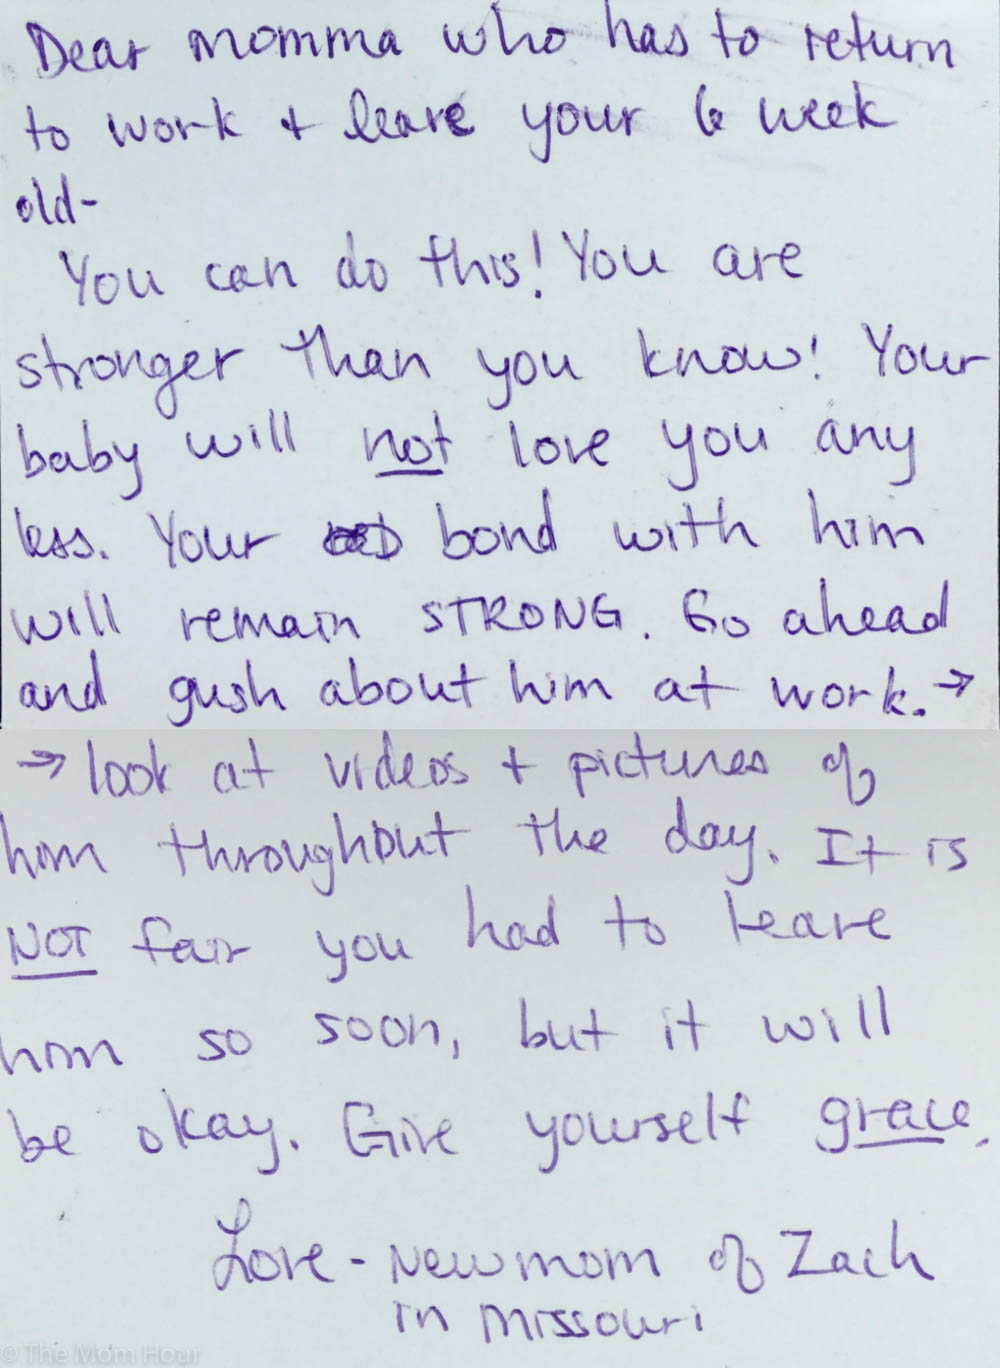 Dear momma who has to return
to work + leave your 6 week
old-
You can do this! You are
stronger than you know! Your
baby will not love you any
less. Your bond with him
will remain STRONG. Go ahead
and gush about him at work. →
→ look at videos + pictures of
him throughout the day. It is
NOT fair you had to leave
him so soon, but it will
be okay. Give yourself grace.
Love - New mom of Zach
in Missouri
© The Mom Hour